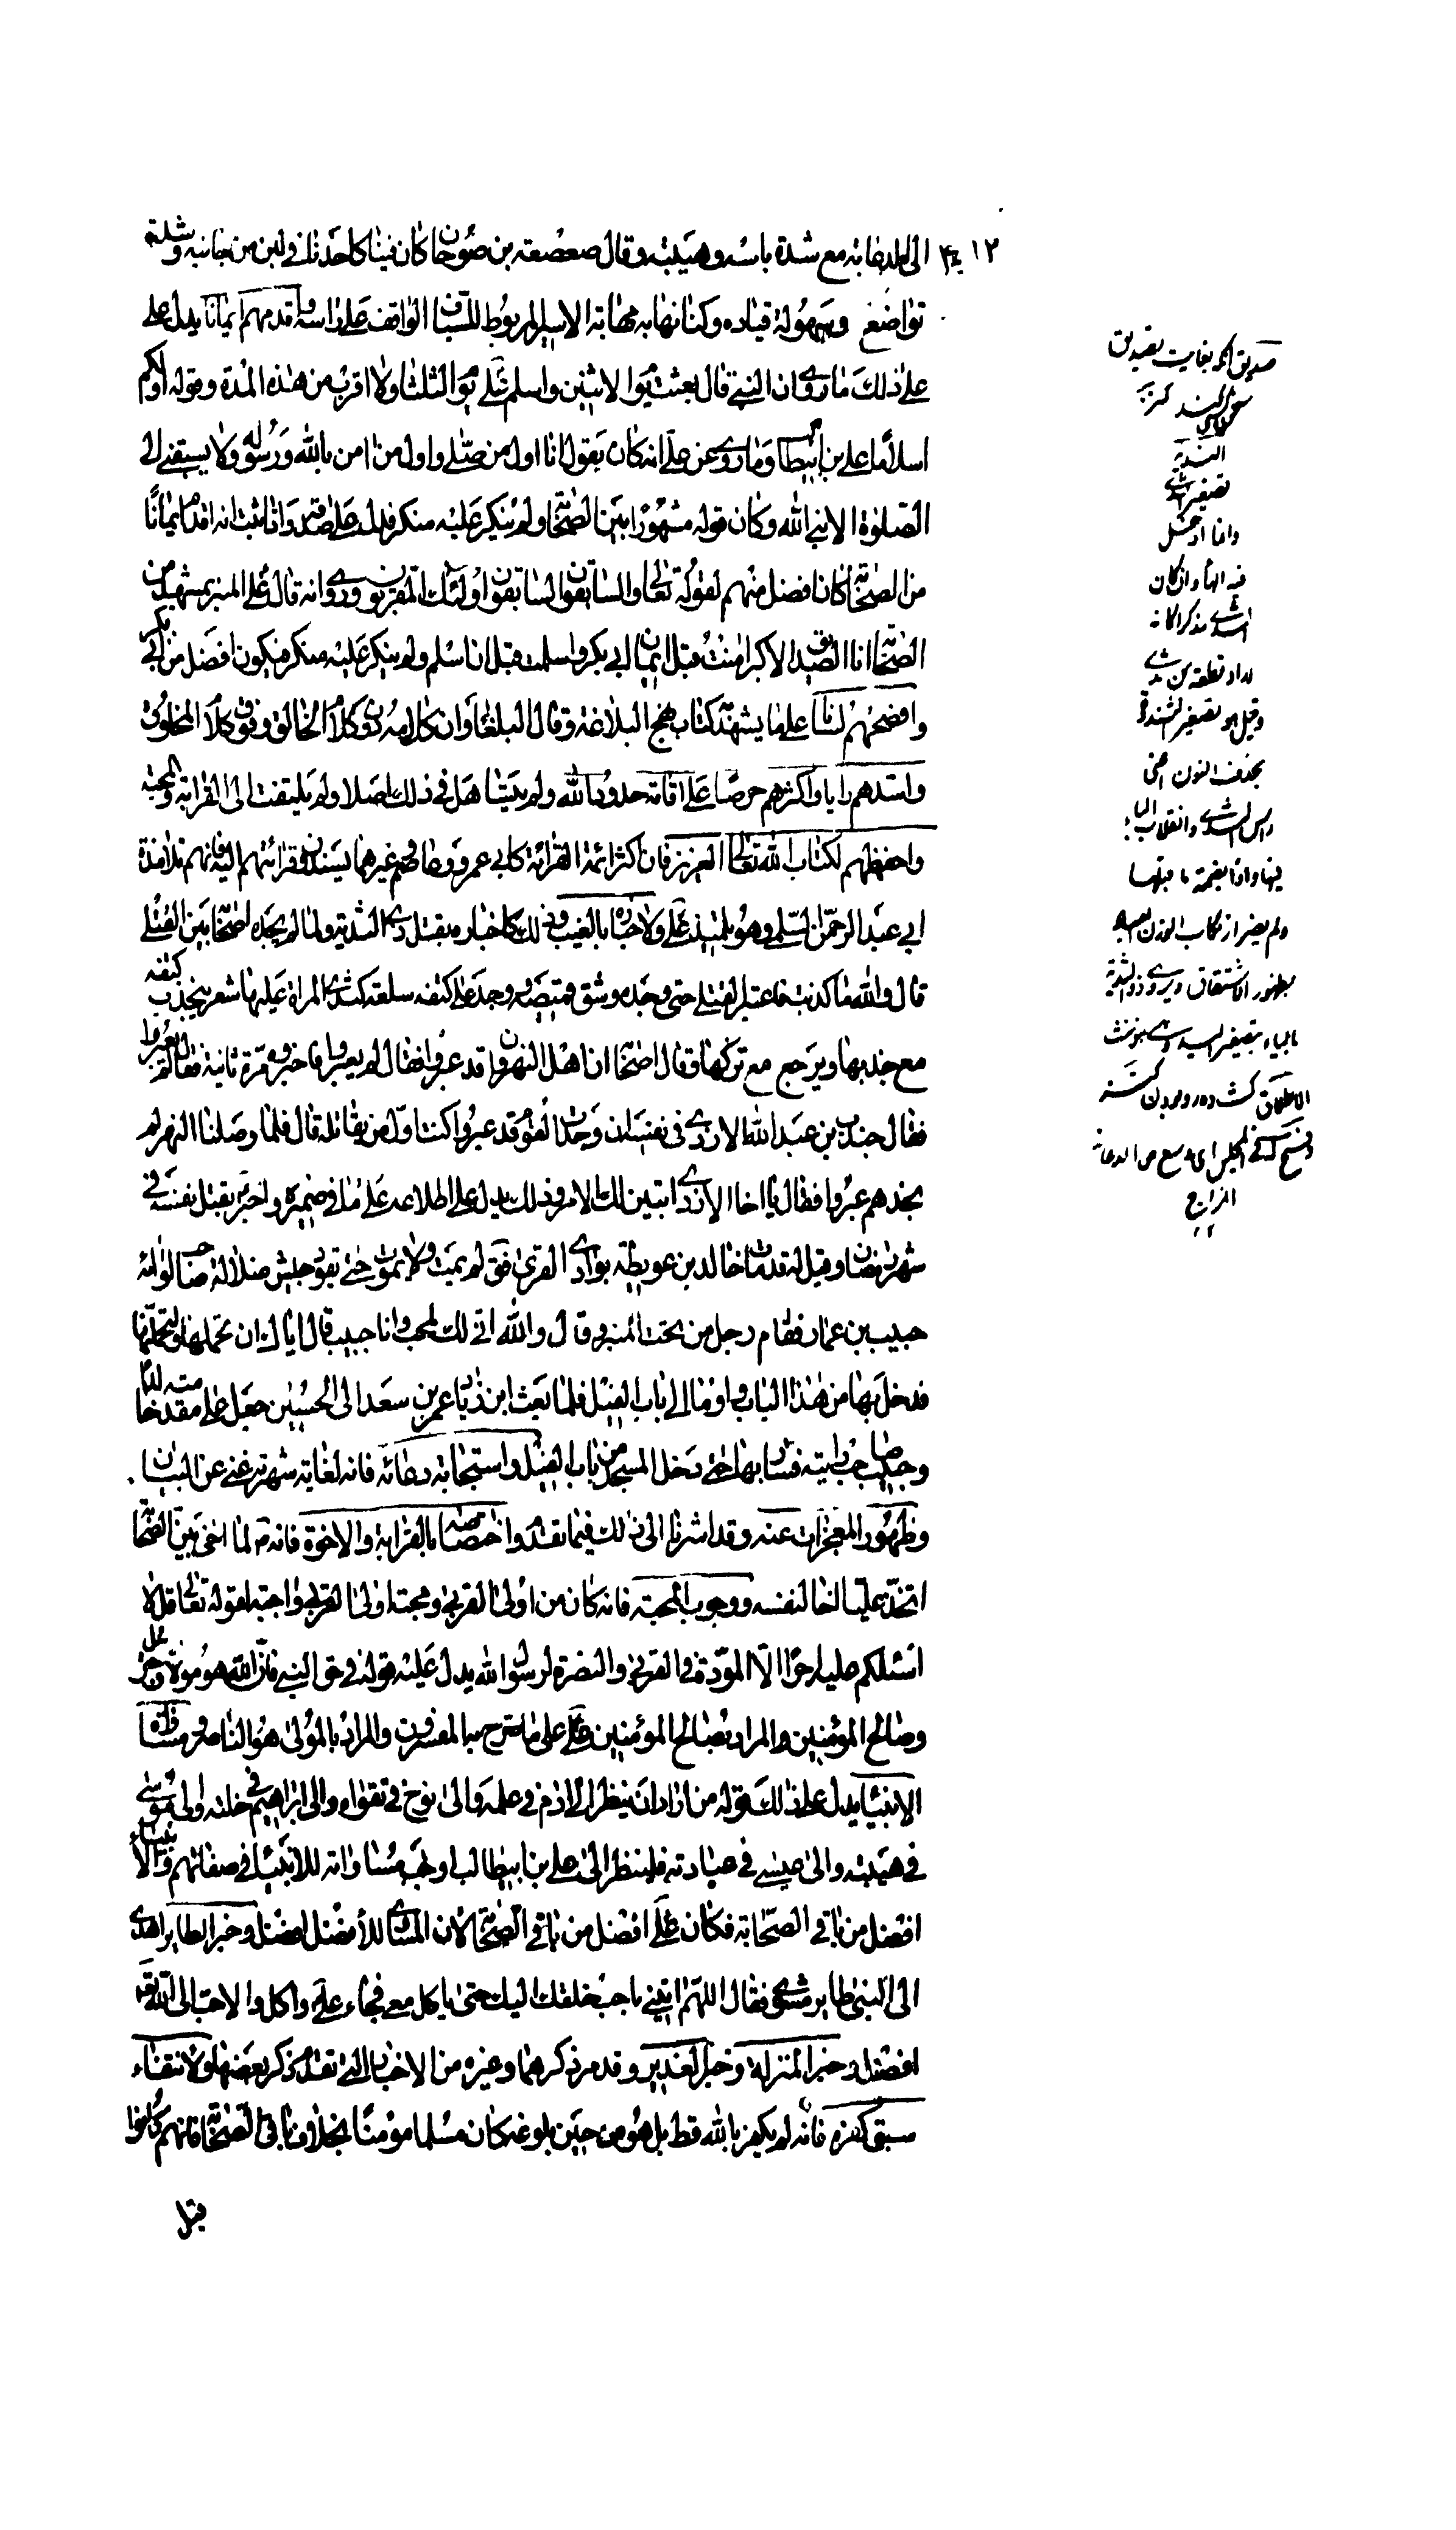 الى الدعابة مع شدة باسه وهيبته وقال صعصعة بن صوحان كان فينا كاحدنا في لين من جانبه وشدة
تواضع وسهولة قياده وكنا نهابه مهابة الاسير المربوط للسياف الواقف على راسه واقدمهم ايمانا يدل على
على ذلك ما روى ان النبي قال بعثت يوم الاثنين واسلم علي يوم الثلثا ولا اقرب من هذه المدة وقوله اولكم
اسلاما علي بن ابيطالب وما روى عن علي انه كان يقول انا اول من صلى واول من امن بالله ورسوله ولا يسبقني الى
الصلوة الا نبي الله وكان قوله مشهورا بين الصحابة ولم ينكر عليه منكر فدل على صدقه واذا ثبت انه اقدم ايمانا
من الصحابة كان افضل منهم لقوله تعالى والسابقون السابقون اولئك المقربون وروى انه قال على المنبر بمشهد من
الصحابة انا الصديق الاكبر امنت قبل ايمان ابي بكر واسلمت قبل ان اسلم ولم ينكر عليه منكر فيكون افضل من ابي بكر
وافصحهم لسانا على ما يشهد كتاب نهج البلاغة وقال البلغاء ان كلامه دون كلام الخالق وفوق كلام المخلوق
واسدهم رايا واكثرهم حرصا على اقامة حدود الله ولم يتساهل في ذلك اصلا ولم يلتفت الى القرابة والمحبة
واحفظهم لكتاب الله تعالى العزيز فان اكثر ائمة القراءة كابي عمرو وعاصم وغيرهما يسندون قرائتهم اليه فانهم تلامذة
ابي عبد الرحمن السلمي وهو تلميذ علي ولاخباره بالغيب وذلك كاخباره بقتل ذي الثدية ولما لم يجده اصحابه بين القتلى
قال والله ما كذبت فاعتبر القتلى حتى وجده وشق قميصه ووجد على كتفه سلعة كثدي المراة عليها شعر ينجذب كتفه
مع جذبها ويرجع مع تركها وقال اصحابه ان اهل النهروان قد عبروا فقال لم يعبروا فاخبروه مرة ثانية فقال لم يعبروا
فقال جندب بن عبد الله الازدي في نفسه ان وجدت القوم قد عبروا كنت اول من يقاتله قال فلما وصلنا النهر لم
نجدهم عبروا فقال يا اخا الازد اتبين لك الامر وذلك يدل على اطلاعه على ما في ضميره واخبر بقتل نفسه في
شهر رمضان وقيل له قد مات خالد بن عويطة بوادي القرى فقال لم يمت ولا يموت حتى يقود جيش ضلالة صاحب لوائه
حبيب بن عمار فقام رجل من تحت المنبر وقال والله اني لك لمحب وانا حبيب قال اياك ان تحملها ولتحملنها
فتدخل بها من هذا الباب واومى الى باب الفيل فلما بعث ابن زياد عمر بن سعد الى الحسين جعل على مقدمته خالدا
وحبيب صاحب رايته فسار بها حتى دخل المسجد من باب الفيل واستجابة دعائه فانه لغاية شهرته غني عن البيان
وظهور المعجزات عنه وقد اشرنا الى ذلك فيما تقدم واختصاصه بالقرابة والاخوة فانه لما اخى بين الصحابة
اتخذ عليا اخا لنفسه ووجوب المحبة فانه كان من اولى القربى ومحبة اولى القربى واجبة لقوله تعالى قل لا
اسئلكم عليه اجرا الا المودة في القربى والنصرة لرسول الله يدل عليه قوله في حق النبي فان الله هو موليه وجبريل
وصالح المؤمنين والمراد بصالح المؤمنين علي على ما صرح به المفسرون والمراد بالمولى هو الناصر ومساواة
الانبياء يدل على ذلك قوله من اراد ان ينظر الى ادم في علمه والى نوح في تقواه والى ابراهيم في خلته والى موسى
في هيبته والى عيسى في عبادته فلينظر الى علي بن ابيطالب اوجب مساواته للانبياء في صفاتهم والانبياء
افضل من باقي الصحابة فكان علي افضل من باقي الصحابة لان المساوي للافضل افضل وخبر الطاير اهدي
الى النبي طاير مشوي فقال اللهم ائتني باحب خلقك اليك حتى ياكل معي فجاء علي واكل والاحب الى الله تعالى
افضل وخبر المنزلة وخبر الغدير وقد مر ذكرهما وغيره من الاخبار التي تقدم ذكر بعضها ولانتفاء
سبق كفره فانه لم يكفر بالله قط بل هو من حين بلوغه كان مسلما مؤمنا بخلاف باقي الصحابة فانهم كانوا
قبل
صديق انكه بغايت تصديق
كند
الثدية
تصغير الثدي
وانما ادخل
فيه الهاء وان كان
الثدي مذكرا لانه
اراد قطعة من ثدي
وقيل هو تصغير الثندوة
بحذف النون
وانقلاب الياء
فيها واوا بضمة ما قبلها
بظهور الاشتقاق ويروى ذو اليدية
بالياء تصغير اليد وهي مؤنث